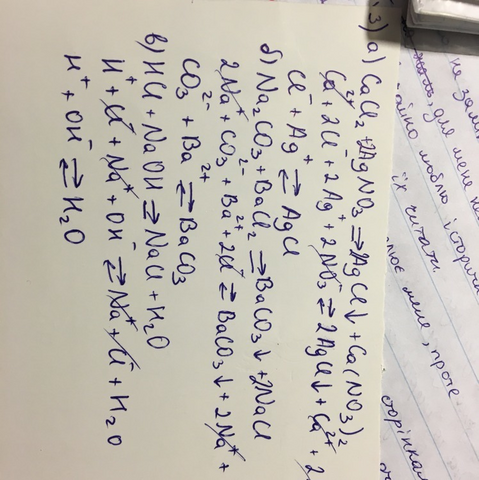 3) а) CaCl₂ + 2AgNO₃ ⇒ 2AgCl↓ + Ca(NO₃)₂
Ca²⁺ + 2Cl⁻ + 2Ag⁺ + 2NO₃⁻ ⇄ 2AgCl↓ + Ca²⁺ + 2
Cl⁻ + Ag⁺ ⇄ AgCl
б) Na₂CO₃ + BaCl₂ ⇒ BaCO₃↓ + 2NaCl
2Na⁺ + CO₃²⁻ + Ba²⁺ + 2Cl⁻ ⇄ BaCO₃↓ + 2Na⁺ +
CO₃²⁻ + Ba²⁺ ⇄ BaCO₃
в) HCl + NaOH ⇒ NaCl + H₂O
H⁺ + Cl⁻ + Na⁺ + OH⁻ ⇄ Na⁺ + Cl⁻ + H₂O
H⁺ + OH⁻ ⇄ H₂O
для мене
люблю історич
їх читати
мене, проте
сторінка